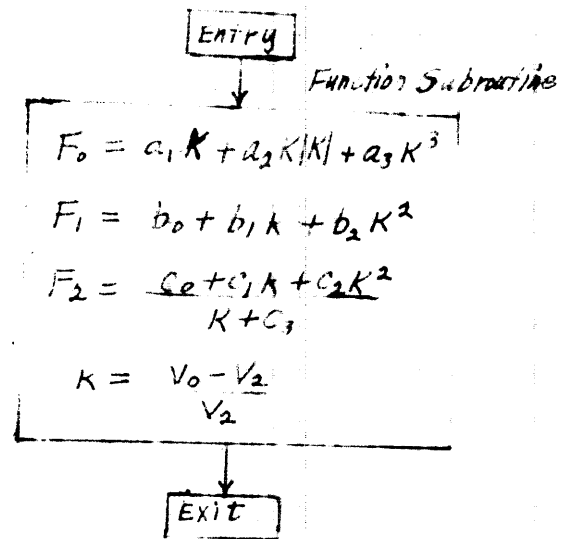 Entry
Function Subroutine
F₀ = a₁K + a₂K|K| + a₃K³
F₁ = b₀ + b₁k + b₂K²
F₂ = C₀ + C₁K + C₂K² / K + C₃
K = V₀ - V₂ / V₂
Exit